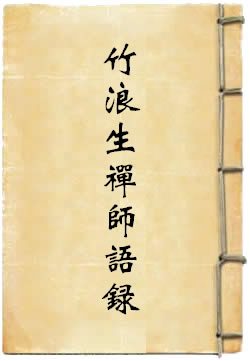 竹浪生禪師語録